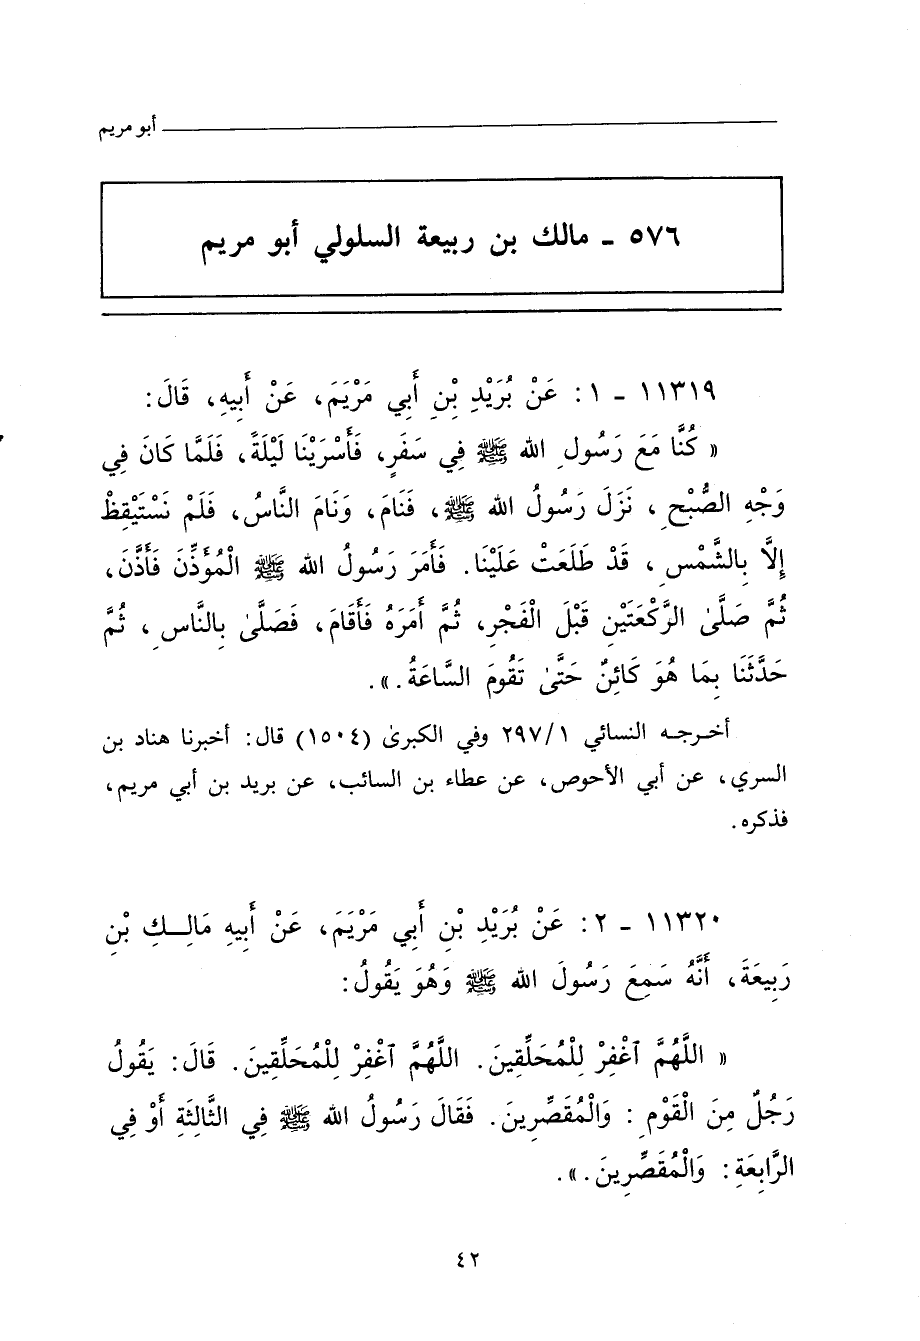 أبو مريم
٥٧٦ - مالك بن ربيعة السلولي أبو مريم
١١٣١٩ - ١ : عَنْ بُرَيْدِ بْنِ أَبِي مَرْيَمَ، عَنْ أَبِيهِ، قَالَ:
« كُنَّا مَعَ رَسُولِ اللهِ ﷺ فِي سَفَرٍ، فَأَسْرَيْنَا لَيْلَةً، فَلَمَّا كَانَ فِي
وَجْهِ الصُّبْحِ، نَزَلَ رَسُولُ اللهِ ﷺ، فَنَامَ، وَنَامَ النَّاسُ، فَلَمْ نَسْتَيْقِظْ
إِلَّا بِالشَّمْسِ، قَدْ طَلَعَتْ عَلَيْنَا. فَأَمَرَ رَسُولُ اللهِ ﷺ الْمُؤَذِّنَ فَأَذَّنَ،
ثُمَّ صَلَّىٰ الرَّكْعَتَيْنِ قَبْلَ الْفَجْرِ، ثُمَّ أَمَرَهُ فَأَقَامَ، فَصَلَّىٰ بِالنَّاسِ، ثُمَّ
حَدَّثَنَا بِمَا هُوَ كَائِنٌ حَتَّىٰ تَقُومَ السَّاعَةُ.».
أخرجه النسائي ٢٩٧/١ وفي الكبرىٰ (١٥٠٤) قال: أخبرنا هناد بن
السري، عن أبي الأحوص، عن عطاء بن السائب، عن بريد بن أبي مريم،
فذكره.
١١٣٢٠ - ٢ : عَنْ بُرَيْدِ بْنِ أَبِي مَرْيَمَ، عَنْ أَبِيهِ مَالِكِ بْنِ
رَبِيعَةَ، أَنَّهُ سَمِعَ رَسُولَ اللهِ ﷺ وَهُوَ يَقُولُ:
« اللَّهُمَّ ٱغْفِرْ لِلْمُحَلِّقِينَ. اللَّهُمَّ ٱغْفِرْ لِلْمُحَلِّقِينَ. قَالَ: يَقُولُ
رَجُلٌ مِنَ الْقَوْمِ: وَالْمُقَصِّرِينَ. فَقَالَ رَسُولُ اللهِ ﷺ فِي الثَّالِثَةِ أَوْ فِي
الرَّابِعَةِ: وَالْمُقَصِّرِينَ.».
٤٢